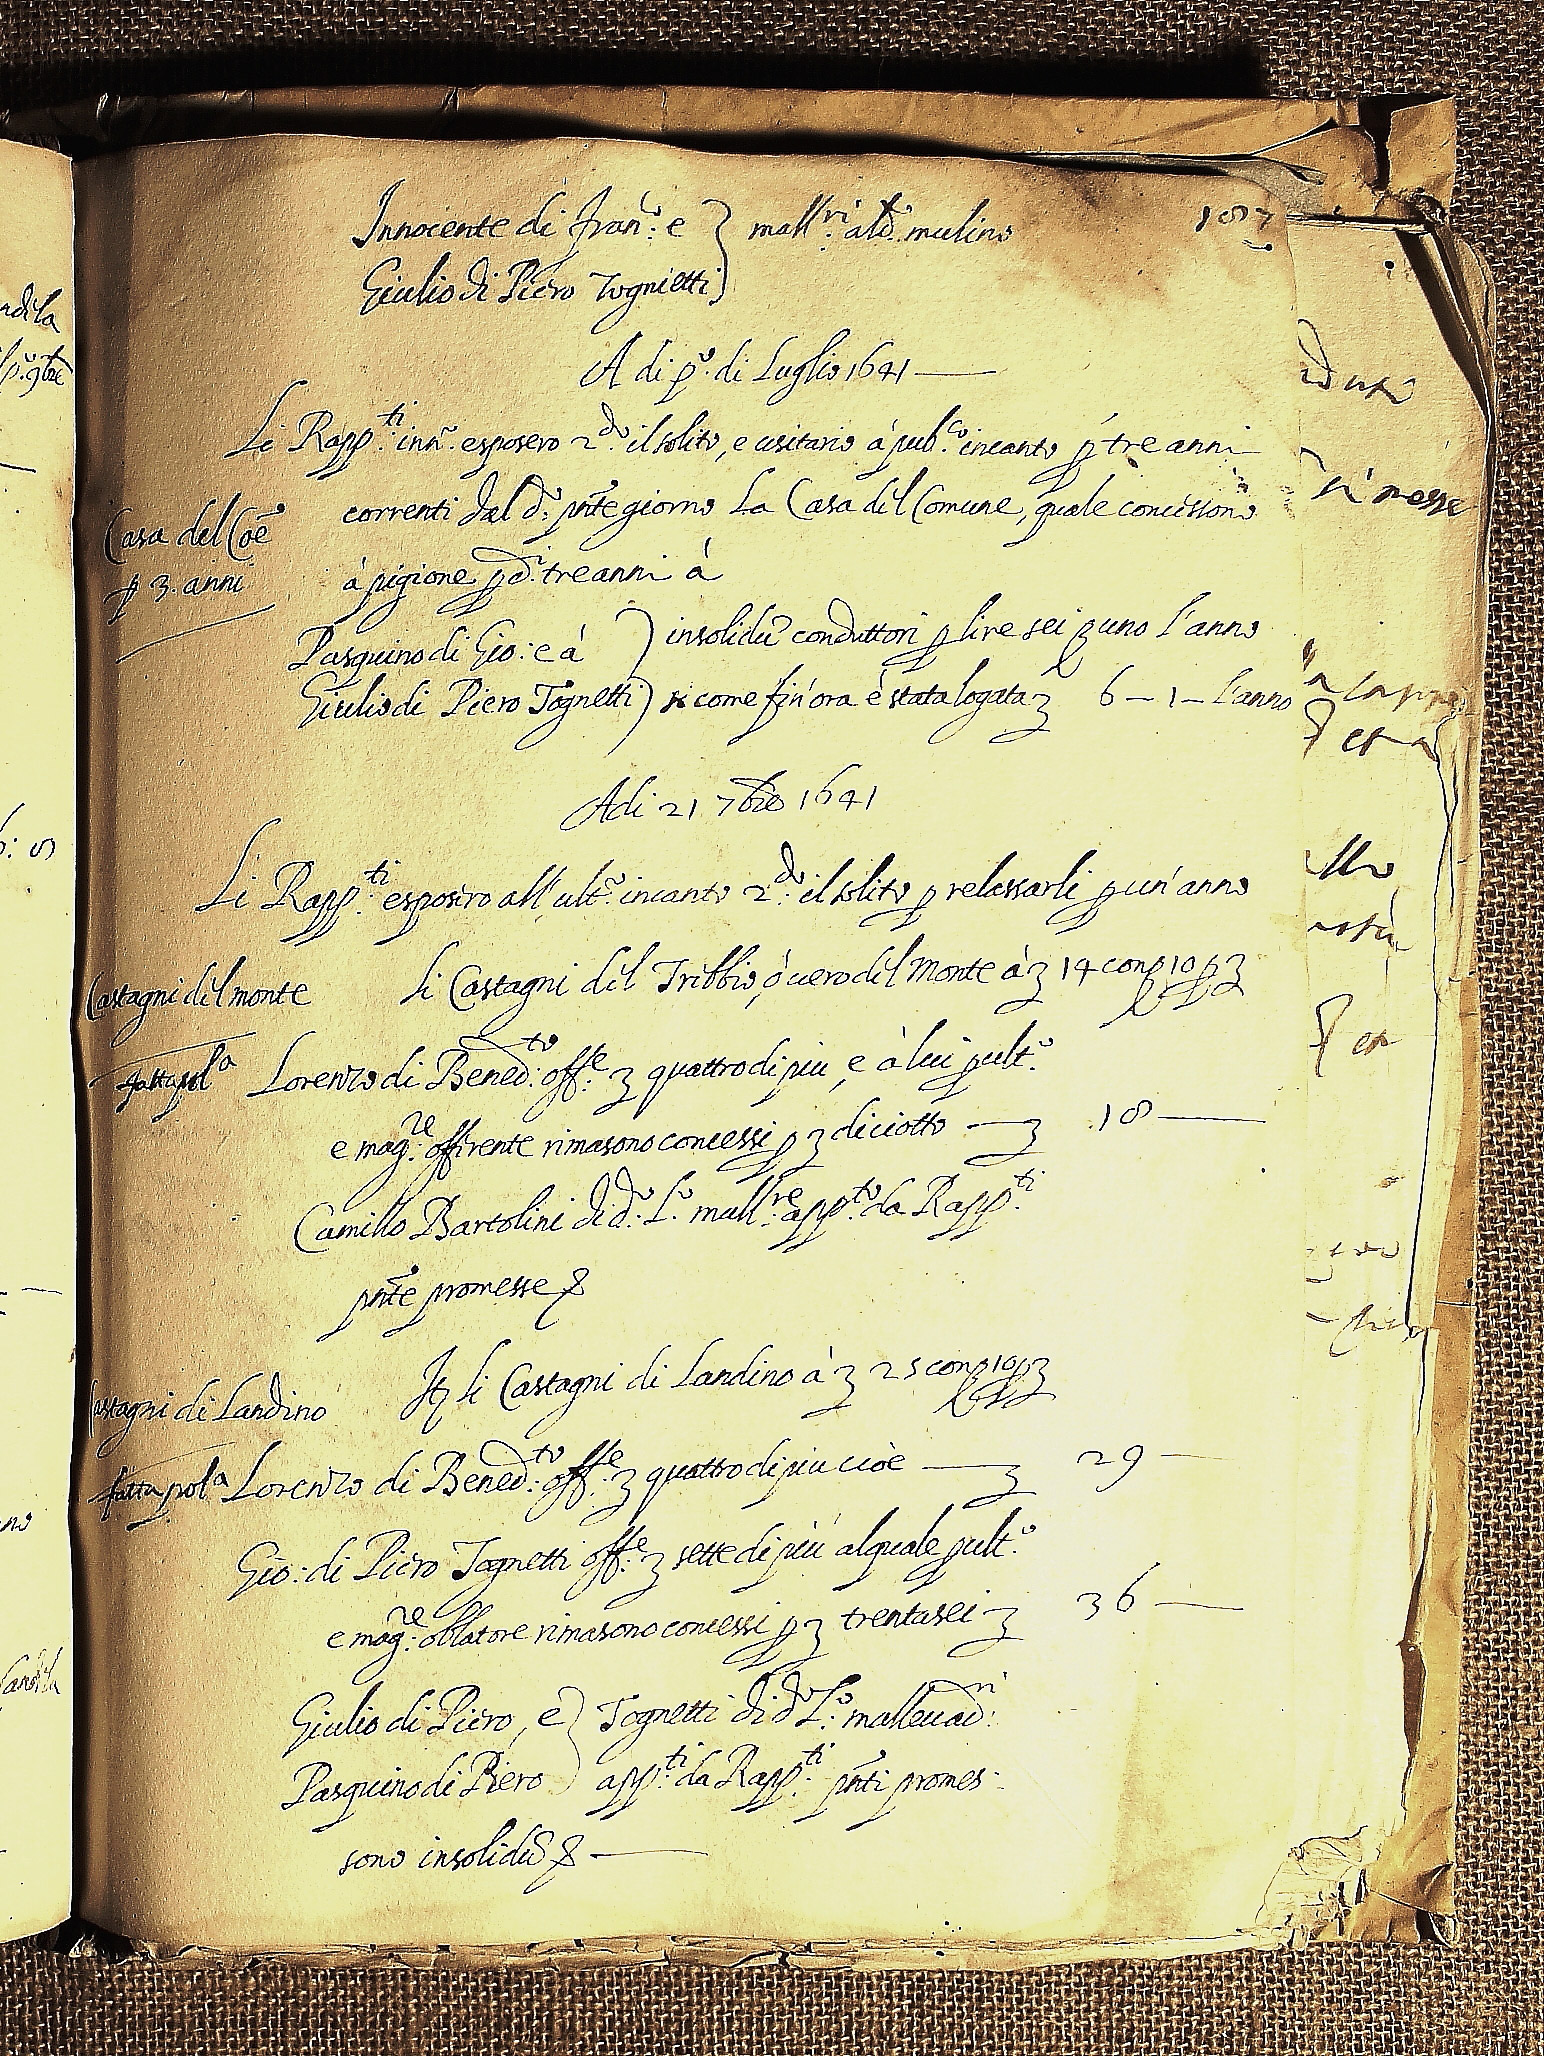 187
Innocente di Fran.co e } mall.ri al d.o mulino
Giulio di Piero Tognietti }
A di p.o di Luglio 1641
Li Rapp.ti inn.o esposero 2.do il solito, e usitario à pub.co incanto p tre anni
Casa del Coe
p 3. anni
correnti dal d.o pnte giorno La Casa del Comune, quale concessono
à pigione p d.i tre anni à
Pasquino di Gio: e à } insolidu conduttori p lire sei uno l'anno
Giulio di Piero Tognetti } si come fin'ora è stata logata 6 – 1 – l'anno
Adi 21 7bre 1641
Li Rapp.ti esposero all'ult.o incanto 2.do il solito p relassarli p un'anno
Castagni del monte
li Castagni del Tribbio, ò vero del Monte à 14 con 10 p
fatta pol.a
Lorenzo di Bened.to off.e quattro di più, e à lui p ult.o
e mag.re offerente rimasono concessi p diciotto — 18 —
Camillo Bartolini di d.o L.o mall.re app.to da Rapp.ti
pnte promesse &
It li Castagni di Landino à 25 con 10 p
Castagni di Landino
fatta pol.a
Lorenzo di Bened.to off.e quattro di più cioè — 29 —
Gio: di Piero Tognetti off.e sette di più al quale p ult.o
e mag.re oblatore rimasono concessi p trentasei 36 —
Giulio di Piero, e } Tognetti di d.o L.o mallevad.ri
Pasquino di Piero } app.ti da Rapp.ti pnti promes-
sono insolidu & —